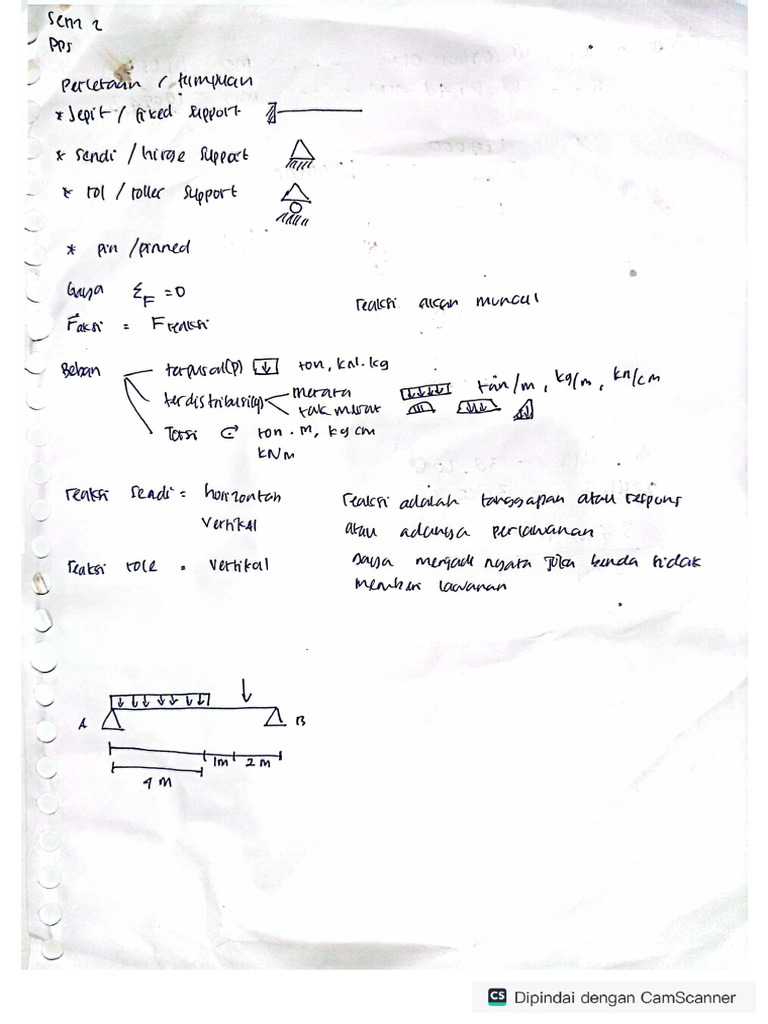 Sem 2
PPS
Perletaan / tumpuan
* Jepit / fixed support
* Sendi / hinge support
* rol / roller support
* pin / pinned
Gaya ΣF = 0
reaksi akan muncul
Faksi = Freaksi
Beban
terpusat(P) ton, kN.kg
terdistribusi(q) merata ton/m, kg/m, kn/cm
tak merat
Torsi ton . m, kg cm
kNm
reaksi sendi = horizontah
Vertikal
reaksi role = vertikal
reaksi adalah tanggapan atau respons
atau adanya perlawanan
Gaya menjadi nyata jika benda tidak
memberi lawanan
A B
1m 2 m
4 m
CS Dipindai dengan CamScanner